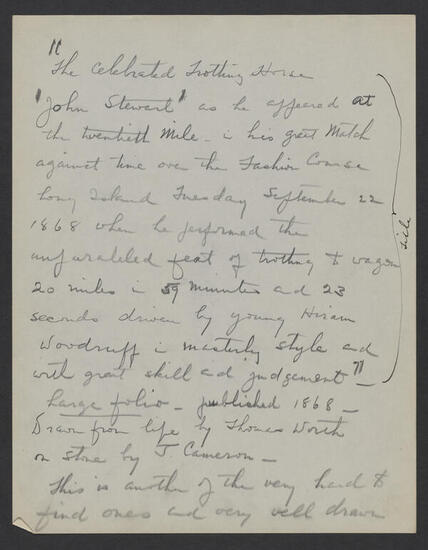 "
The Celebrated Trotting Horse
"John Stewart" as he appeared at
the twentieth Mile - in his great Match
against time over the Fashion Course
Long Island Tuesday September 22
1868 when he performed the
unparalleled feat of trotting to wagon
20 miles in 59 minutes and 23
seconds driven by young Hiram
Woodruff in masterly style and
with great skill and judgement" -
Large folio - published 1868 -
Drawn from life by Thomas Worth
on stone by J. Cameron -
This is another of the very hard to
find ones and very well drawn
title